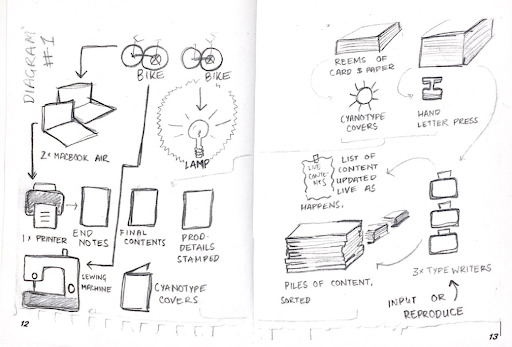 DIAGRAM
#1
BIKE
BIKE
2 x MACBOOK AIR
LAMP
1 x PRINTER
END
NOTES
FINAL
CONTENTS
PROD-
DETAILS
STAMPED
SEWING
MACHINE
CYANOTYPE
COVERS
12
REEMS OF
CARD & PAPER
CYANOTYPE
COVERS
HAND
LETTER PRESS
LIVE
CONTE
NTS
LIST OF
CONTENT
UPDATED
LIVE AS
HAPPENS.
PILES OF CONTENT,
SORTED
3x TYPE WRITERS
INPUT OR
REPRODUCE
13